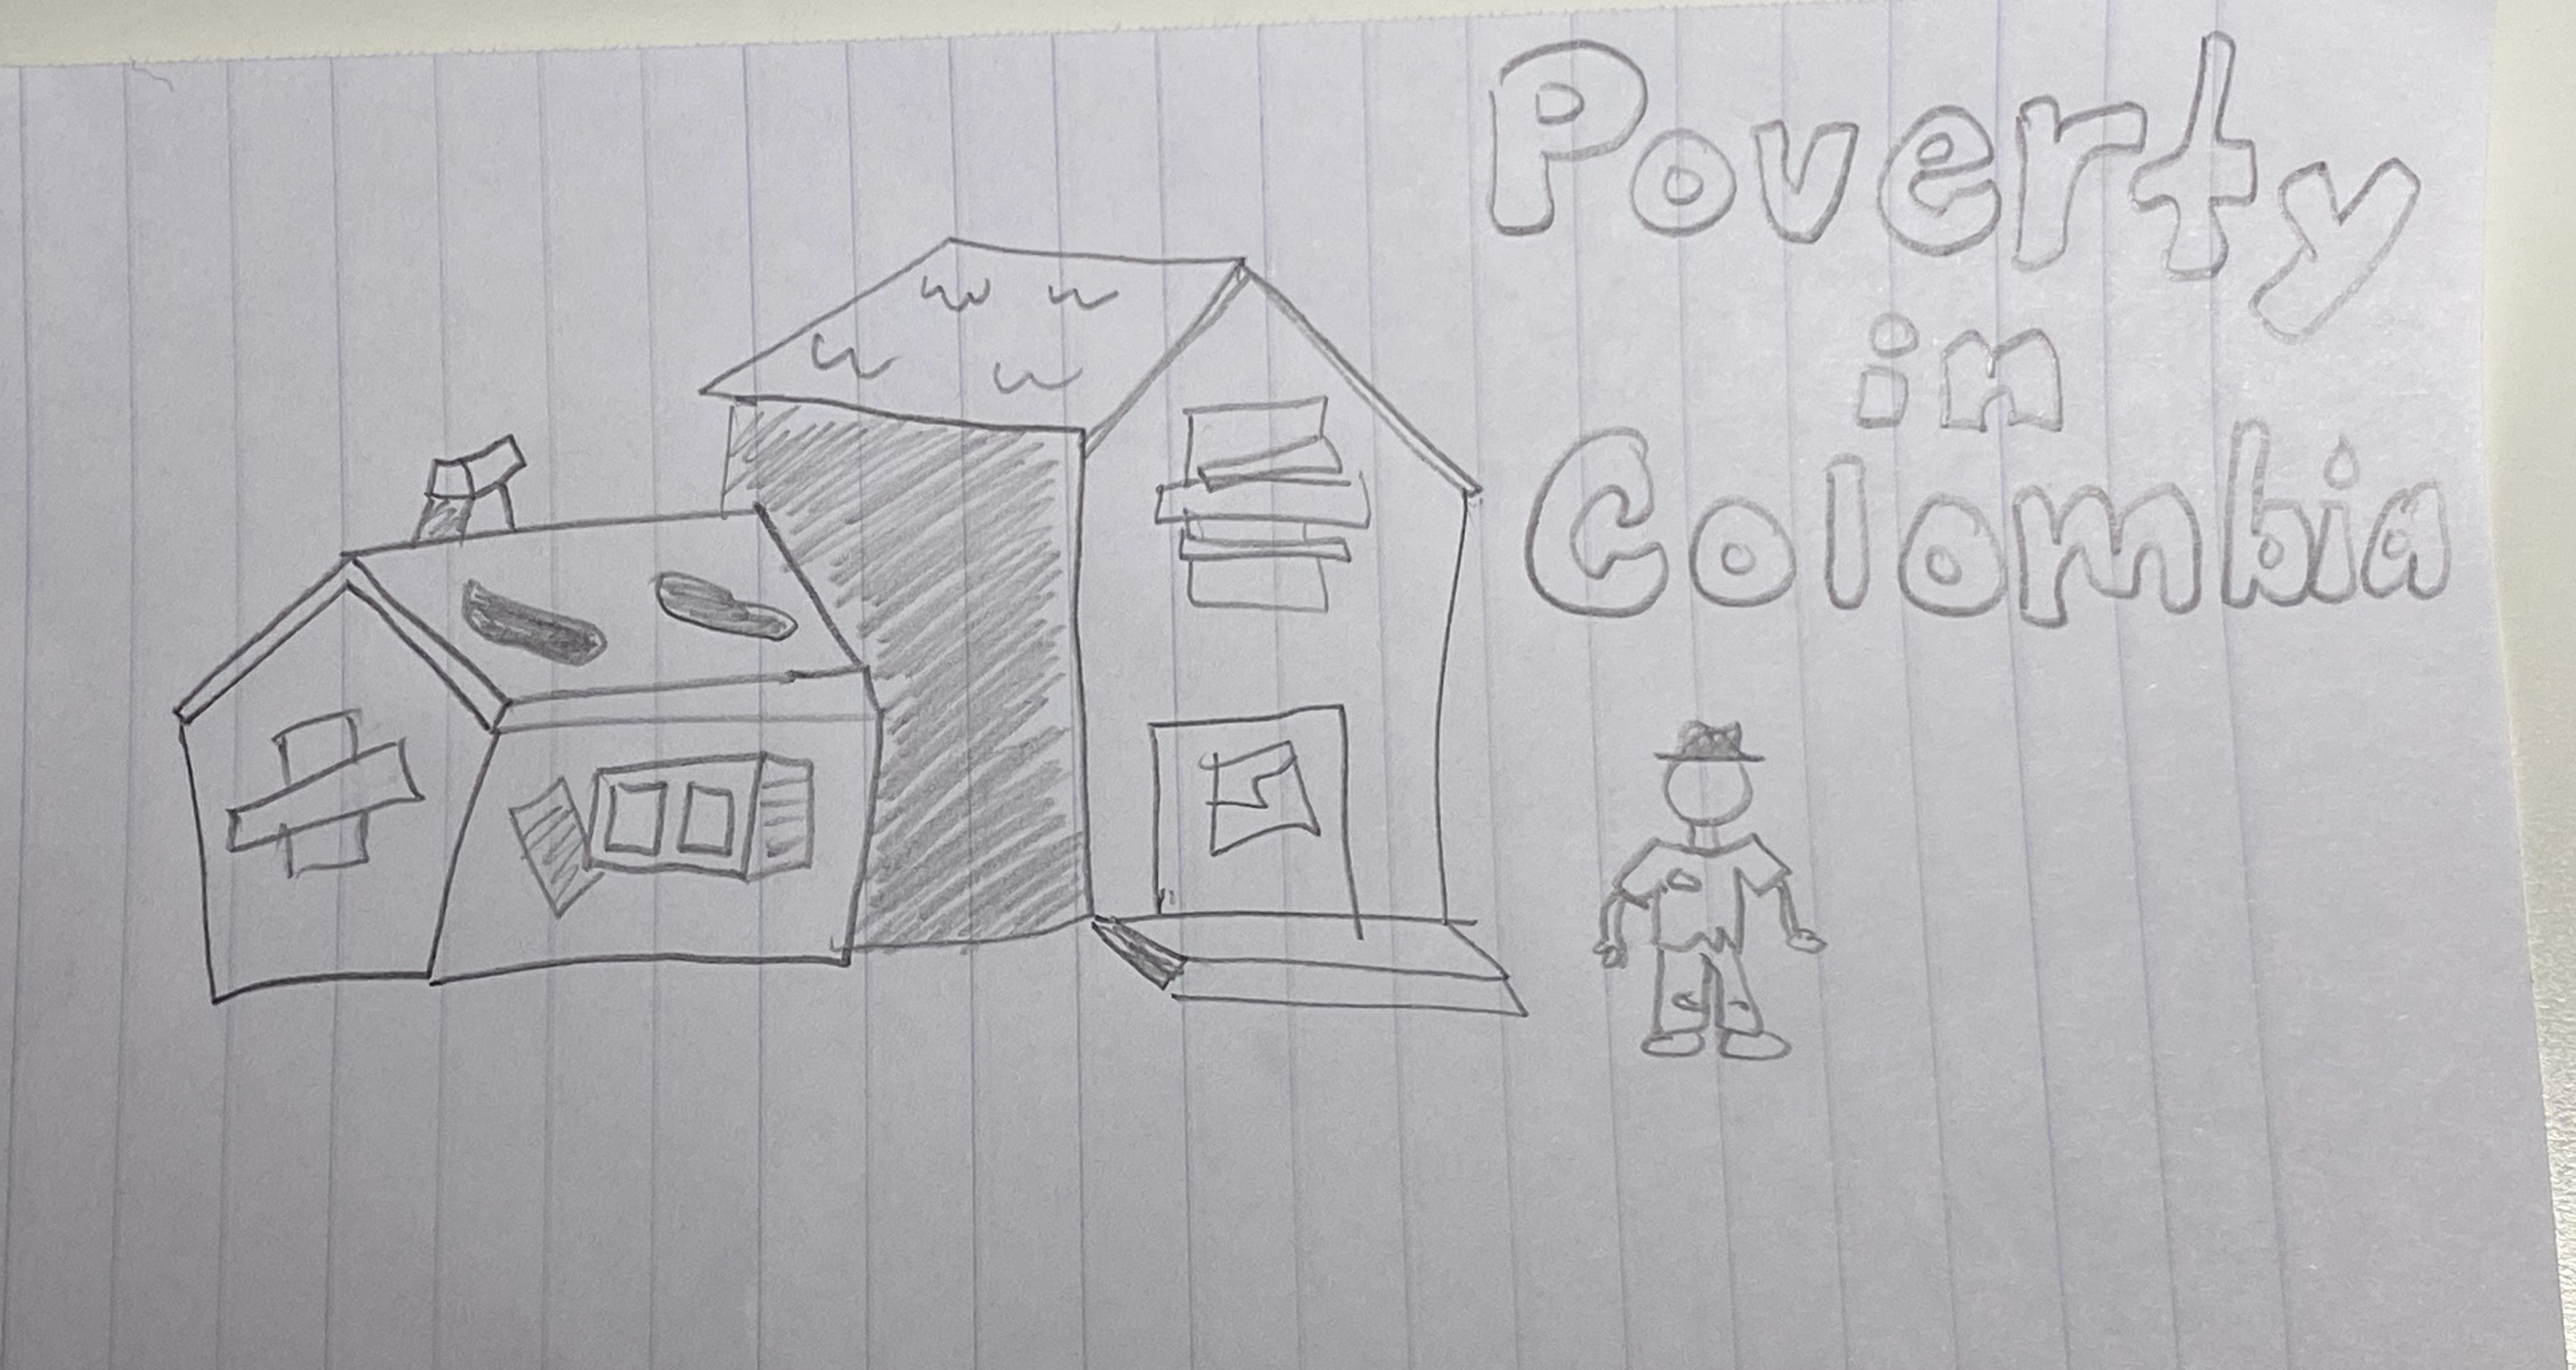 Poverty
in
Colombia